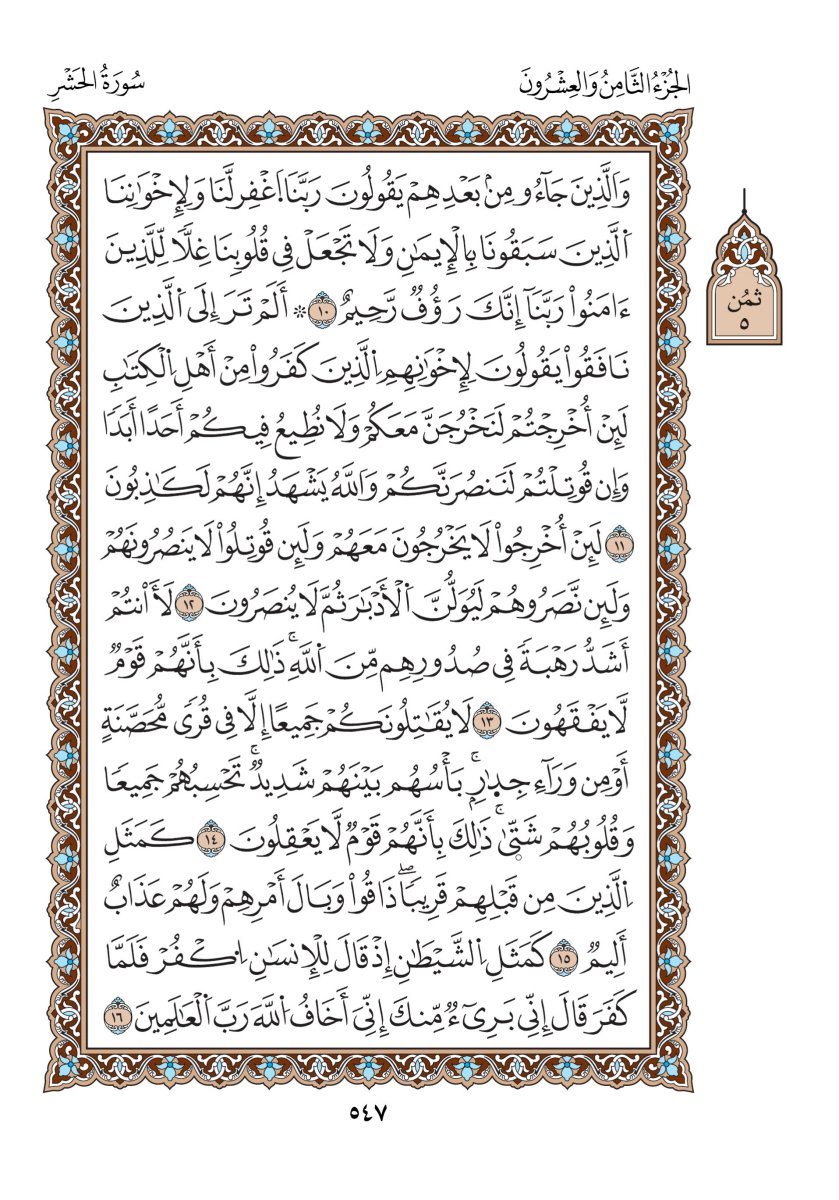 الجُزْءُ الثَّامِنُ وَالعِشْرُونَ
سُورَةُ الحَشْرِ
وَالَّذِينَ جَآءُو مِنۢ بَعْدِهِمْ يَقُولُونَ رَبَّنَا اَغْفِر لَّنَا وَلِإِخْوَٰنِنَا
اَلَّذِينَ سَبَقُونَا بِالْإِيمَٰنِ وَلَا تَجْعَلْ فِي قُلُوبِنَا غِلًّا لِّلَّذِينَ
ءَامَنُواْ رَبَّنَآ إِنَّكَ رَؤُفٌ رَّحِيمٌ ١٠ ۞ أَلَمْ تَرَ إِلَى اَلَّذِينَ
نَافَقُواْ يَقُولُونَ لِإِخْوَٰنِهِمِ اِلَّذِينَ كَفَرُواْ مِنْ أَهْلِ اِلْكِتَٰبِ
لَئِنْ أُخْرِجْتُمْ لَنَخْرُجَنَّ مَعَكُمْ وَلَا نُطِيعُ فِيكُمْ أَحَدًا أَبَدًا
وَإِن قُوتِلْتُمْ لَنَنصُرَنَّكُمْ وَاَللَّهُ يَشْهَدُ إِنَّهُمْ لَكَٰذِبُونَ
١١ لَئِنْ أُخْرِجُواْ لَا يَخْرُجُونَ مَعَهُمْ وَلَئِن قُوتِلُواْ لَا يَنصُرُونَهُمْ
وَلَئِن نَّصَرُوهُمْ لَيُوَلُّنَّ اَلْأَدْبَٰرَ ثُمَّ لَا يُنصَرُونَ ١٢ لَأَنتُمْ
أَشَدُّ رَهْبَةً فِي صُدُورِهِم مِّنَ اَللَّهِۚ ذَٰلِكَ بِأَنَّهُمْ قَوْمٌ
لَّا يَفْقَهُونَ ١٣ لَا يُقَٰتِلُونَكُمْ جَمِيعًا إِلَّا فِي قُرًى مُّحَصَّنَةٍ
أَوْ مِن وَرَآءِ جِدَٰرٍۚ بَأْسُهُم بَيْنَهُمْ شَدِيدٌۚ تَحْسِبُهُمْ جَمِيعًا
وَقُلُوبُهُمْ شَتّىٰۚ ذَٰلِكَ بِأَنَّهُمْ قَوْمٌ لَّا يَعْقِلُونَ ١٤ كَمَثَلِ
اِلَّذِينَ مِن قَبْلِهِمْ قَرِيبًاۖ ذَاقُواْ وَبَالَ أَمْرِهِمْ وَلَهُمْ عَذَابٌ
أَلِيمٌ ١٥ كَمَثَلِ اِلشَّيْطَٰنِ إِذْ قَالَ لِلْإِنسَٰنِ اِكْفُرْ فَلَمَّا
كَفَرَ قَالَ إِنِّي بَرِيٓءٌ مِّنكَ إِنِّيَ أَخَافُ اُللَّهَ رَبَّ اَلْعَٰلَمِينَ ١٦
ثُمُن
٥
٥٤٧